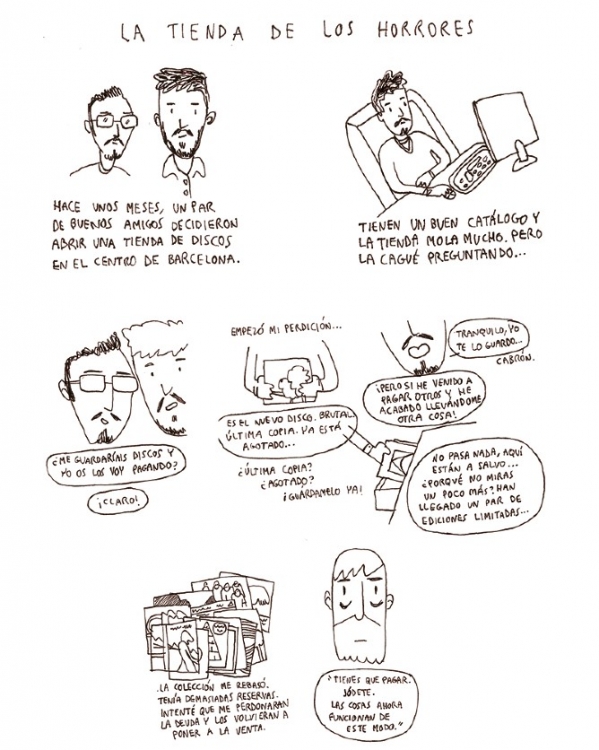 LA TIENDA DE LOS HORRORES
HACE UNOS MESES, UN PAR
DE BUENOS AMIGOS DECIDIERON
ABRIR UNA TIENDA DE DISCOS
EN EL CENTRO DE BARCELONA.
TIENEN UN BUEN CATÁLOGO Y
LA TIENDA MOLA MUCHO. PERO
LA CAGUÉ PREGUNTANDO...
¿ME GUARDARÍAIS DISCOS Y
YO OS LOS VOY PAGANDO?
¡CLARO!
EMPEZÓ MI PERDICIÓN...
ES EL NUEVO DISCO. BRUTAL.
ÚLTIMA COPIA. YA ESTÁ
AGOTADO...
¿ÚLTIMA COPIA?
¿AGOTADO?
¡GUÁRDAMELO YA!
TRANQUILO, YO
TE LO GUARDO...
CABRÓN.
¡PERO SI HE VENIDO A
PAGAR OTROS Y HE
ACABADO LLEVÁNDOME
OTRA COSA!
NO PASA NADA, AQUÍ
ESTÁN A SALVO...
¿PORQUÉ NO MIRAS
UN POCO MÁS? HAN
LLEGADO UN PAR DE
EDICIONES LIMITADAS...
LA COLECCIÓN ME REBASÓ.
TENÍA DEMASIADAS RESERVAS.
INTENTÉ QUE ME PERDONARAN
LA DEUDA Y LOS VOLVIERAN A
PONER A LA VENTA.
"TIENES QUE PAGAR.
JÓDETE.
LAS COSAS AHORA
FUNCIONAN DE
ESTE MODO."